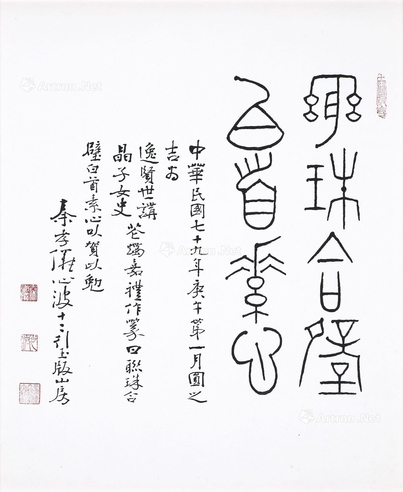 聯珠合璧
白首素心
中華民國七十九年庚午第一月圓之
吉為
逸賢世講
晶子女史 花燭嘉禮作篆曰聯珠合
璧白首素心以賀以勉
秦孝儀心波十二引玉版山房
Artron.Net
Artron.Net
Artron.Net